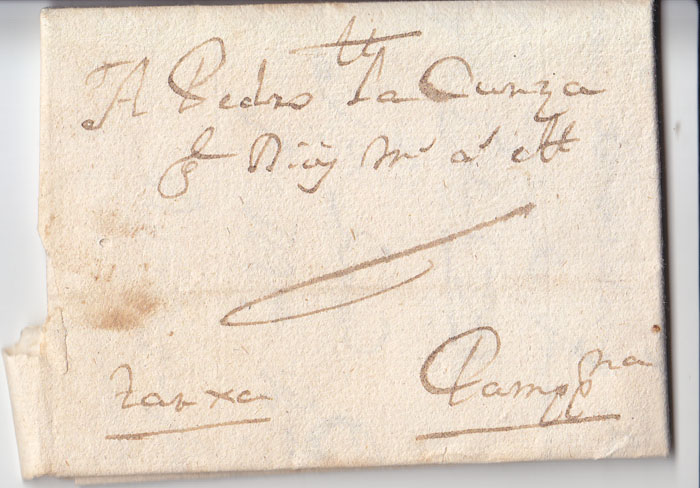 A Pedro la Cunza
g Dios m. a. ett
zarxa Pampna